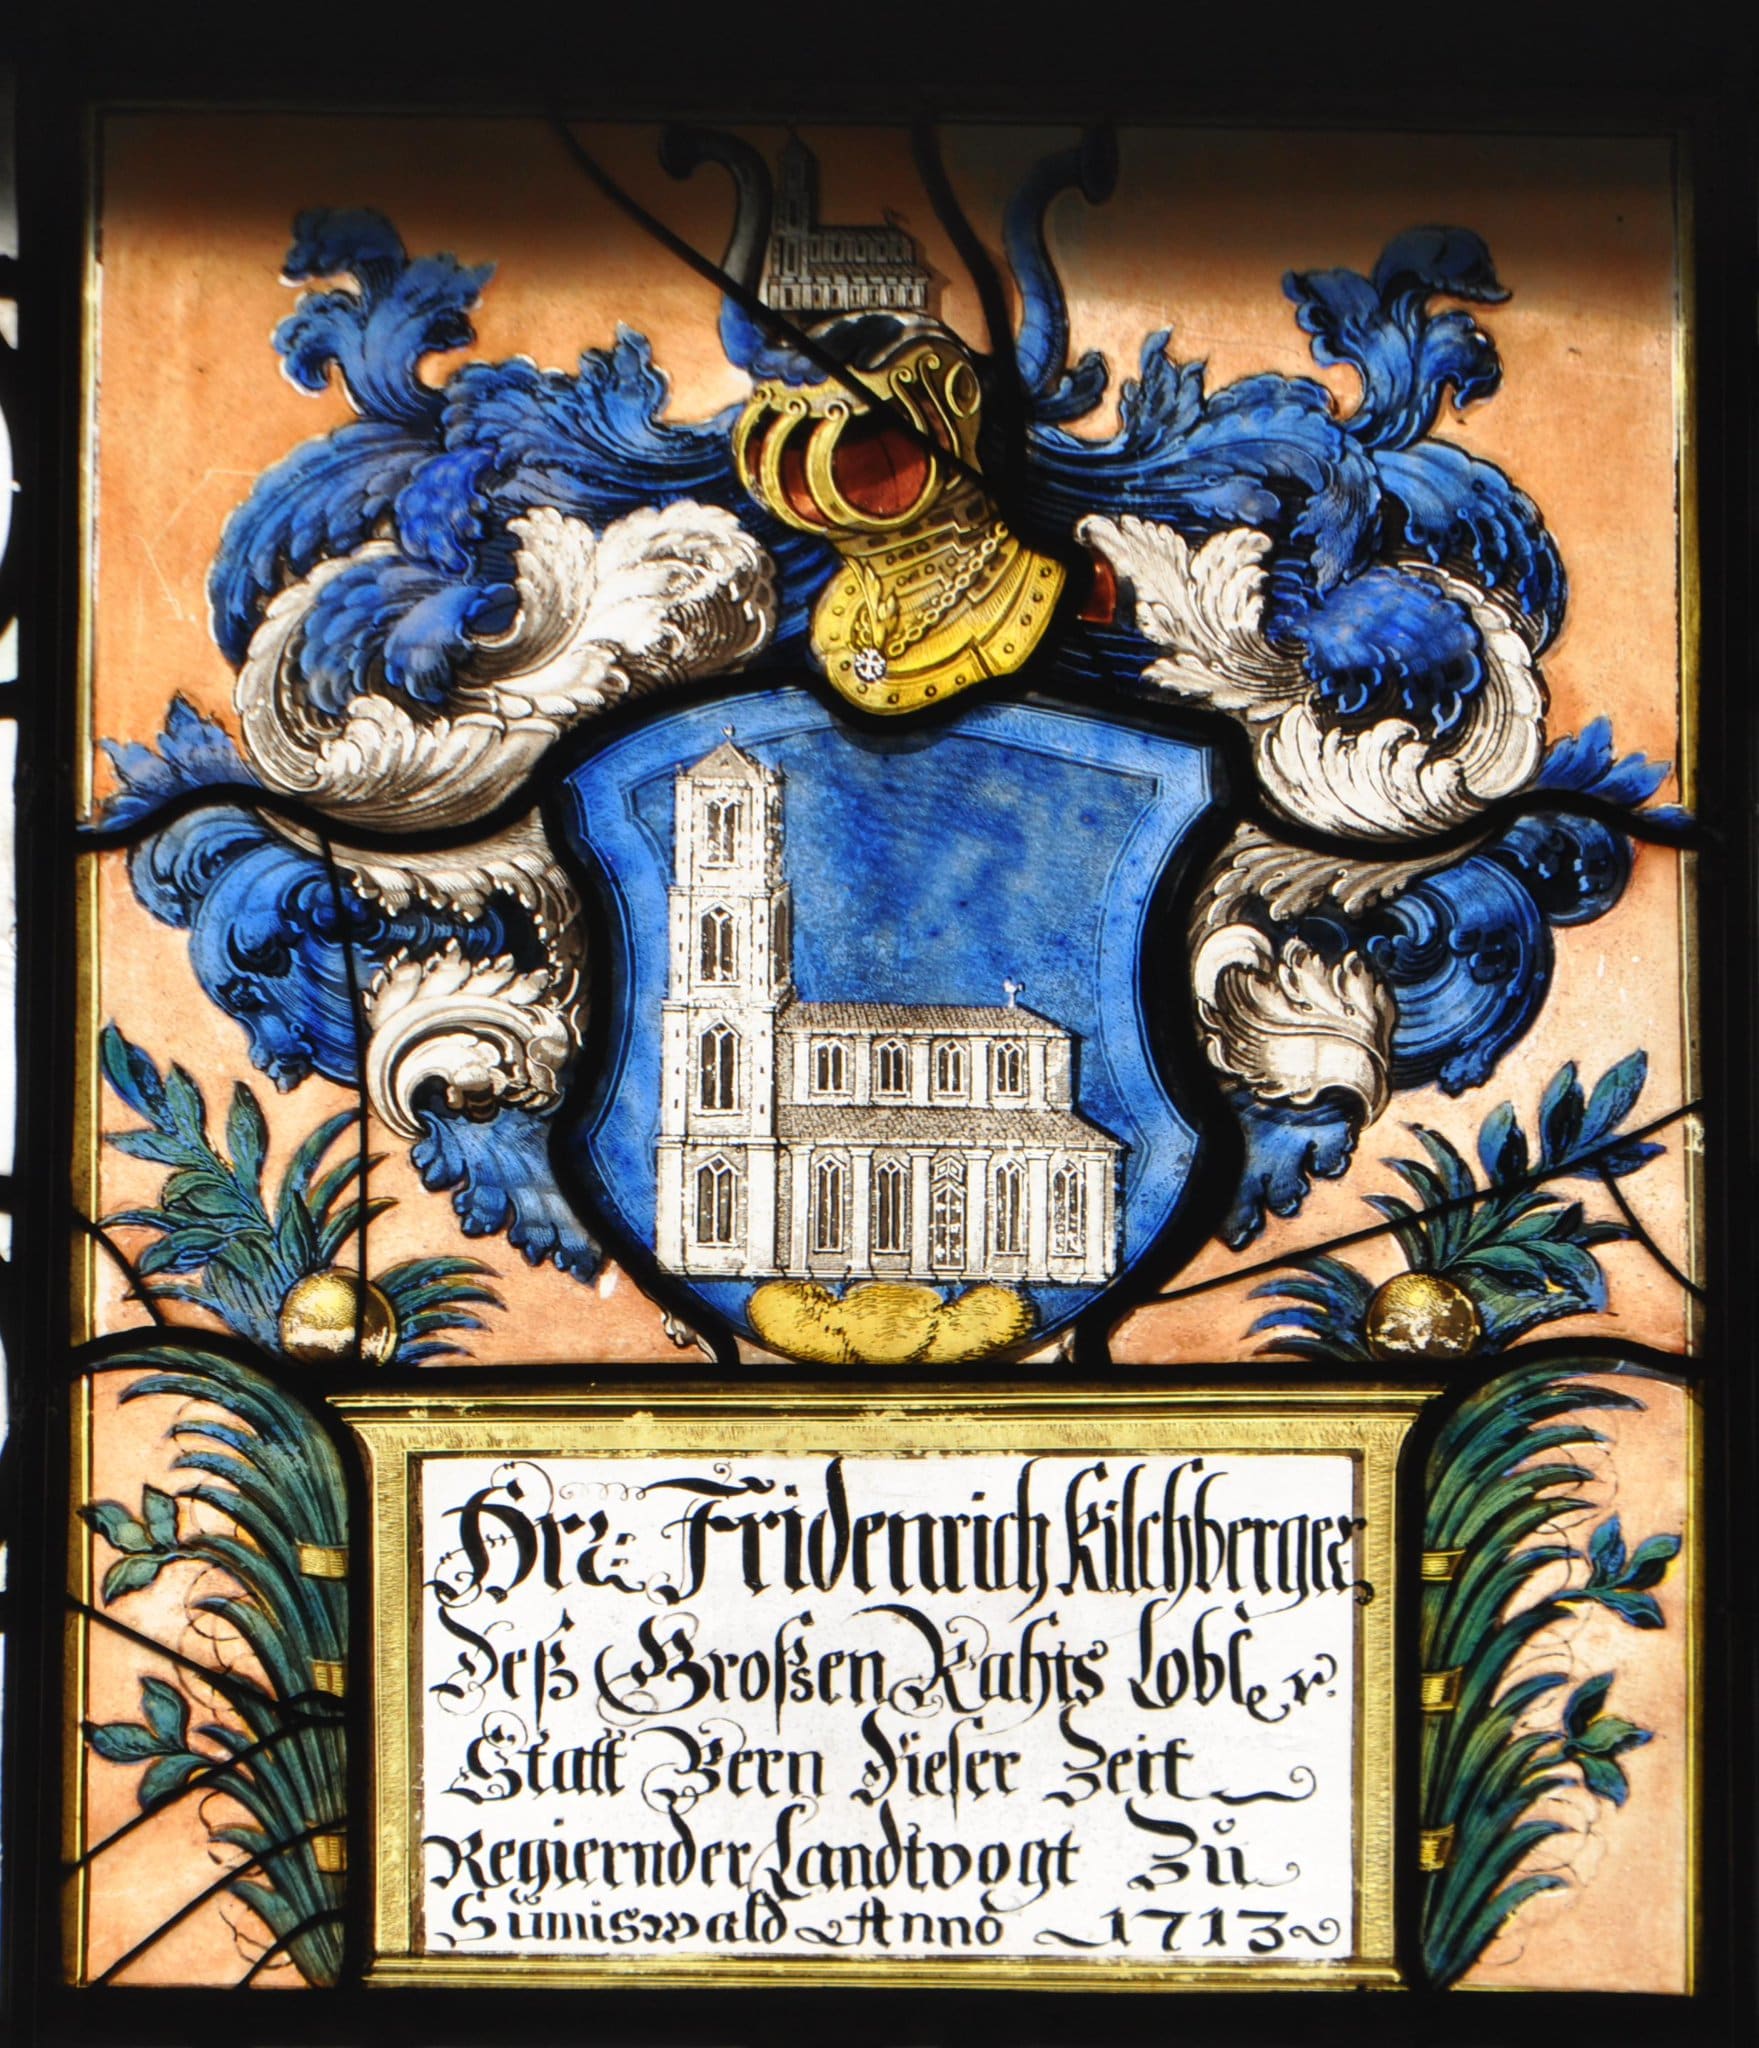 Hr. Fridenrich Kilchberger,
Deß Großen Rahts Lobl.r
Statt Bern Dieser Zeit
Regiernder Landtvogt Zů
Sumiswald Anno 1713